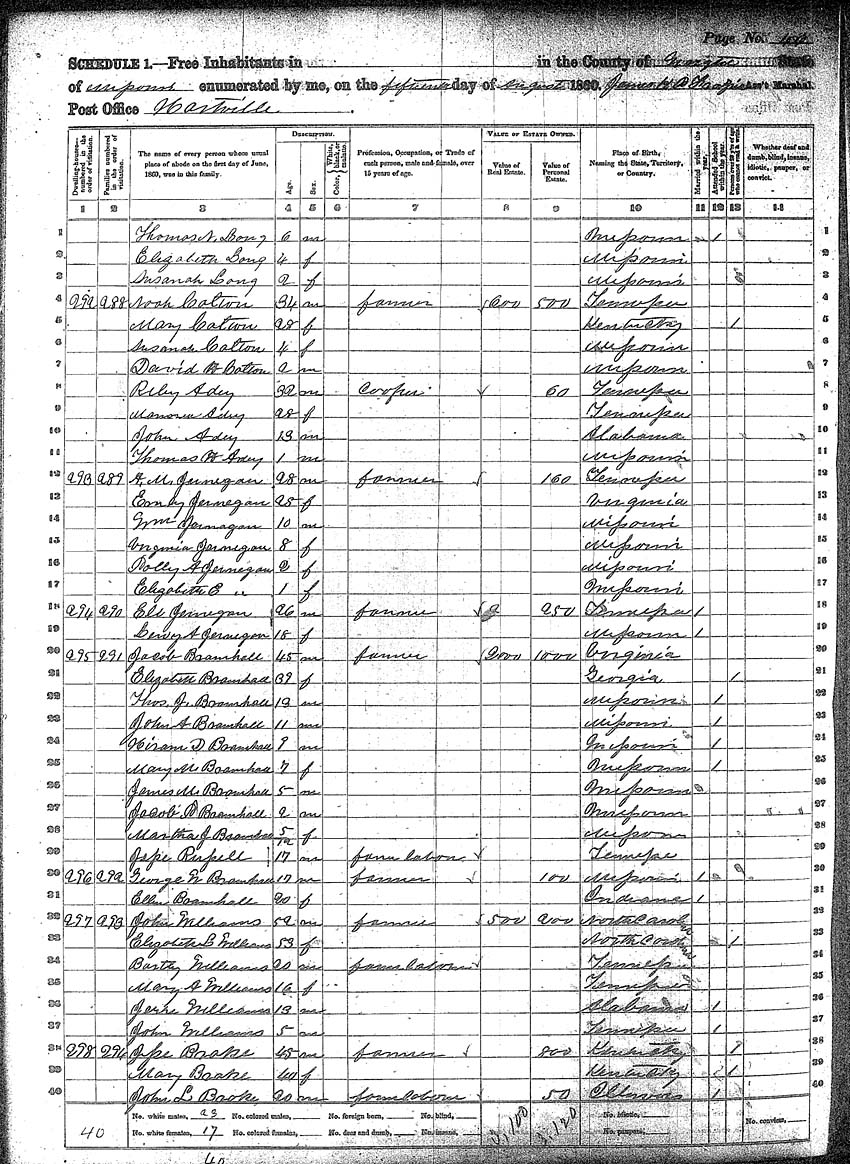 Page No.
SCHEDULE 1.—Free Inhabitants in in the County of State
of enumerated by me, on the fifteenth day of August 1860. Ass't Marshal.
Post Office Hartville
Dwelling-houses—numbered in the order of visitation. Families numbered in the order of visitation. The name of every person whose usual place of abode on the first day of June, 1860, was in this family. DESCRIPTION. Age. Sex. Color, White, black, or mulatto. Profession, Occupation, or Trade of each person, male and female, over 15 years of age. VALUE OF ESTATE OWNED. Value of Real Estate. Value of Personal Estate. Place of Birth, Naming the State, Territory, or Country. Married within the year. Attended School within the year. Whether deaf and dumb, blind, insane, idiotic, pauper, or convict.
1 2 3 4 5 6 7 8 9 10 11 12 13 14
1 Thomas N. Long 6 m Missouri 1 1
2 Elizabeth Long 4 f Missouri 2
3 Susanah Long 2 f Missouri 3
4 292 288 Noah Colton 34 m farmer 600 500 Tennessee 4
5 Mary Colton 28 f Kentucky 1 5
6 Susanah Colton 4 f Missouri 6
7 David Colton 2 m Missouri 7
8 Riley Adey 32 m Cooper 60 Tennessee 8
9 Adey 28 f Tennessee 9
10 John Adey 13 m Alabama 10
11 Thomas Adey 1 m Missouri 11
12 293 289 A. M. Jernegan 28 m farmer 160 Tennessee 12
13 Emily Jernegan 25 f Virginia 13
14 Wm Jernagan 10 m Missouri 14
15 Virginia Jernegan 8 f Missouri 15
16 Polly A Jernegan 2 f Missouri 16
17 Elizabeth E " 1 f Missouri 17
18 294 290 Eli Jernegan 26 m farmer 250 Tennessee 1 18
19 A Jernegan 18 f Missouri 1 19
20 295 291 Jacob Bramhall 45 m farmer 2000 1000 Virginia 20
21 Elizabeth Bramhall 39 f Georgia 1 21
22 Thos. J. Bramhall 13 m Missouri 1 22
23 John A Bramhall 11 m Missouri 1 23
24 Hiram D Bramhall 9 m Missouri 1 24
25 Mary M Bramhall 7 f Missouri 1 25
26 James M Bramhall 5 m Missouri 26
27 Jacob Bramhall 2 m Missouri 27
28 Martha J Bramhall 5/12 f Missouri 28
29 Jesse Russell 17 m farm labor Tennessee 29
30 296 292 George W Bramhall 17 m farmer 100 Missouri 1 30
31 Ellen Bramhall 20 f Indiana 1 31
32 297 293 John Williams 52 m farmer 500 200 North Carolina 32
33 Elizabeth Williams 53 f North Carolina 1 33
34 Williams 20 m farm labour Tennessee 34
35 Mary A Williams 16 f Tennessee 35
36 Williams 13 m Alabama 1 36
37 John Williams 5 m Tennessee 1 37
38 298 294 Jesse Brake 45 m farmer 800 Kentucky 1 38
39 Mary Brake 40 f Kentucky 1 39
40 John L Brake 20 m farm labour 50 Illinois 1 40
No. white males, 23 No. colored males, No. foreign born, No. blind, No. idiotic, No. convict,
40 No. white females, 17 No. colored females, No. deaf and dumb, No. insane, 3,100 3,120 No. paupers,
40